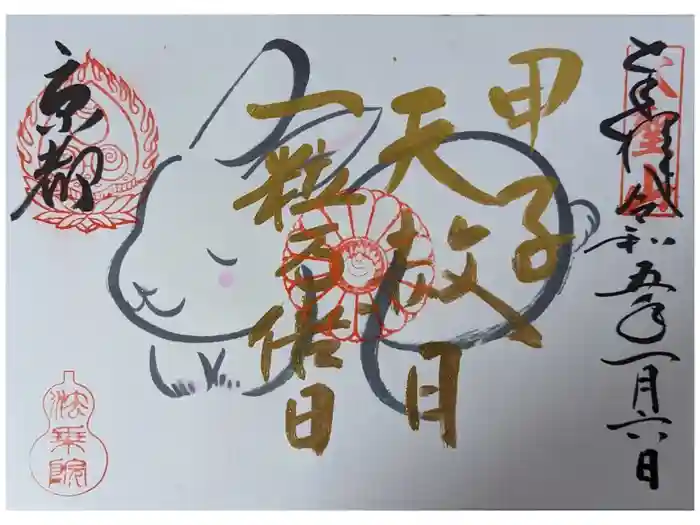 奉拝 令和五年一月六日
甲子
天赦日
一粒万倍日
京都
法乗院